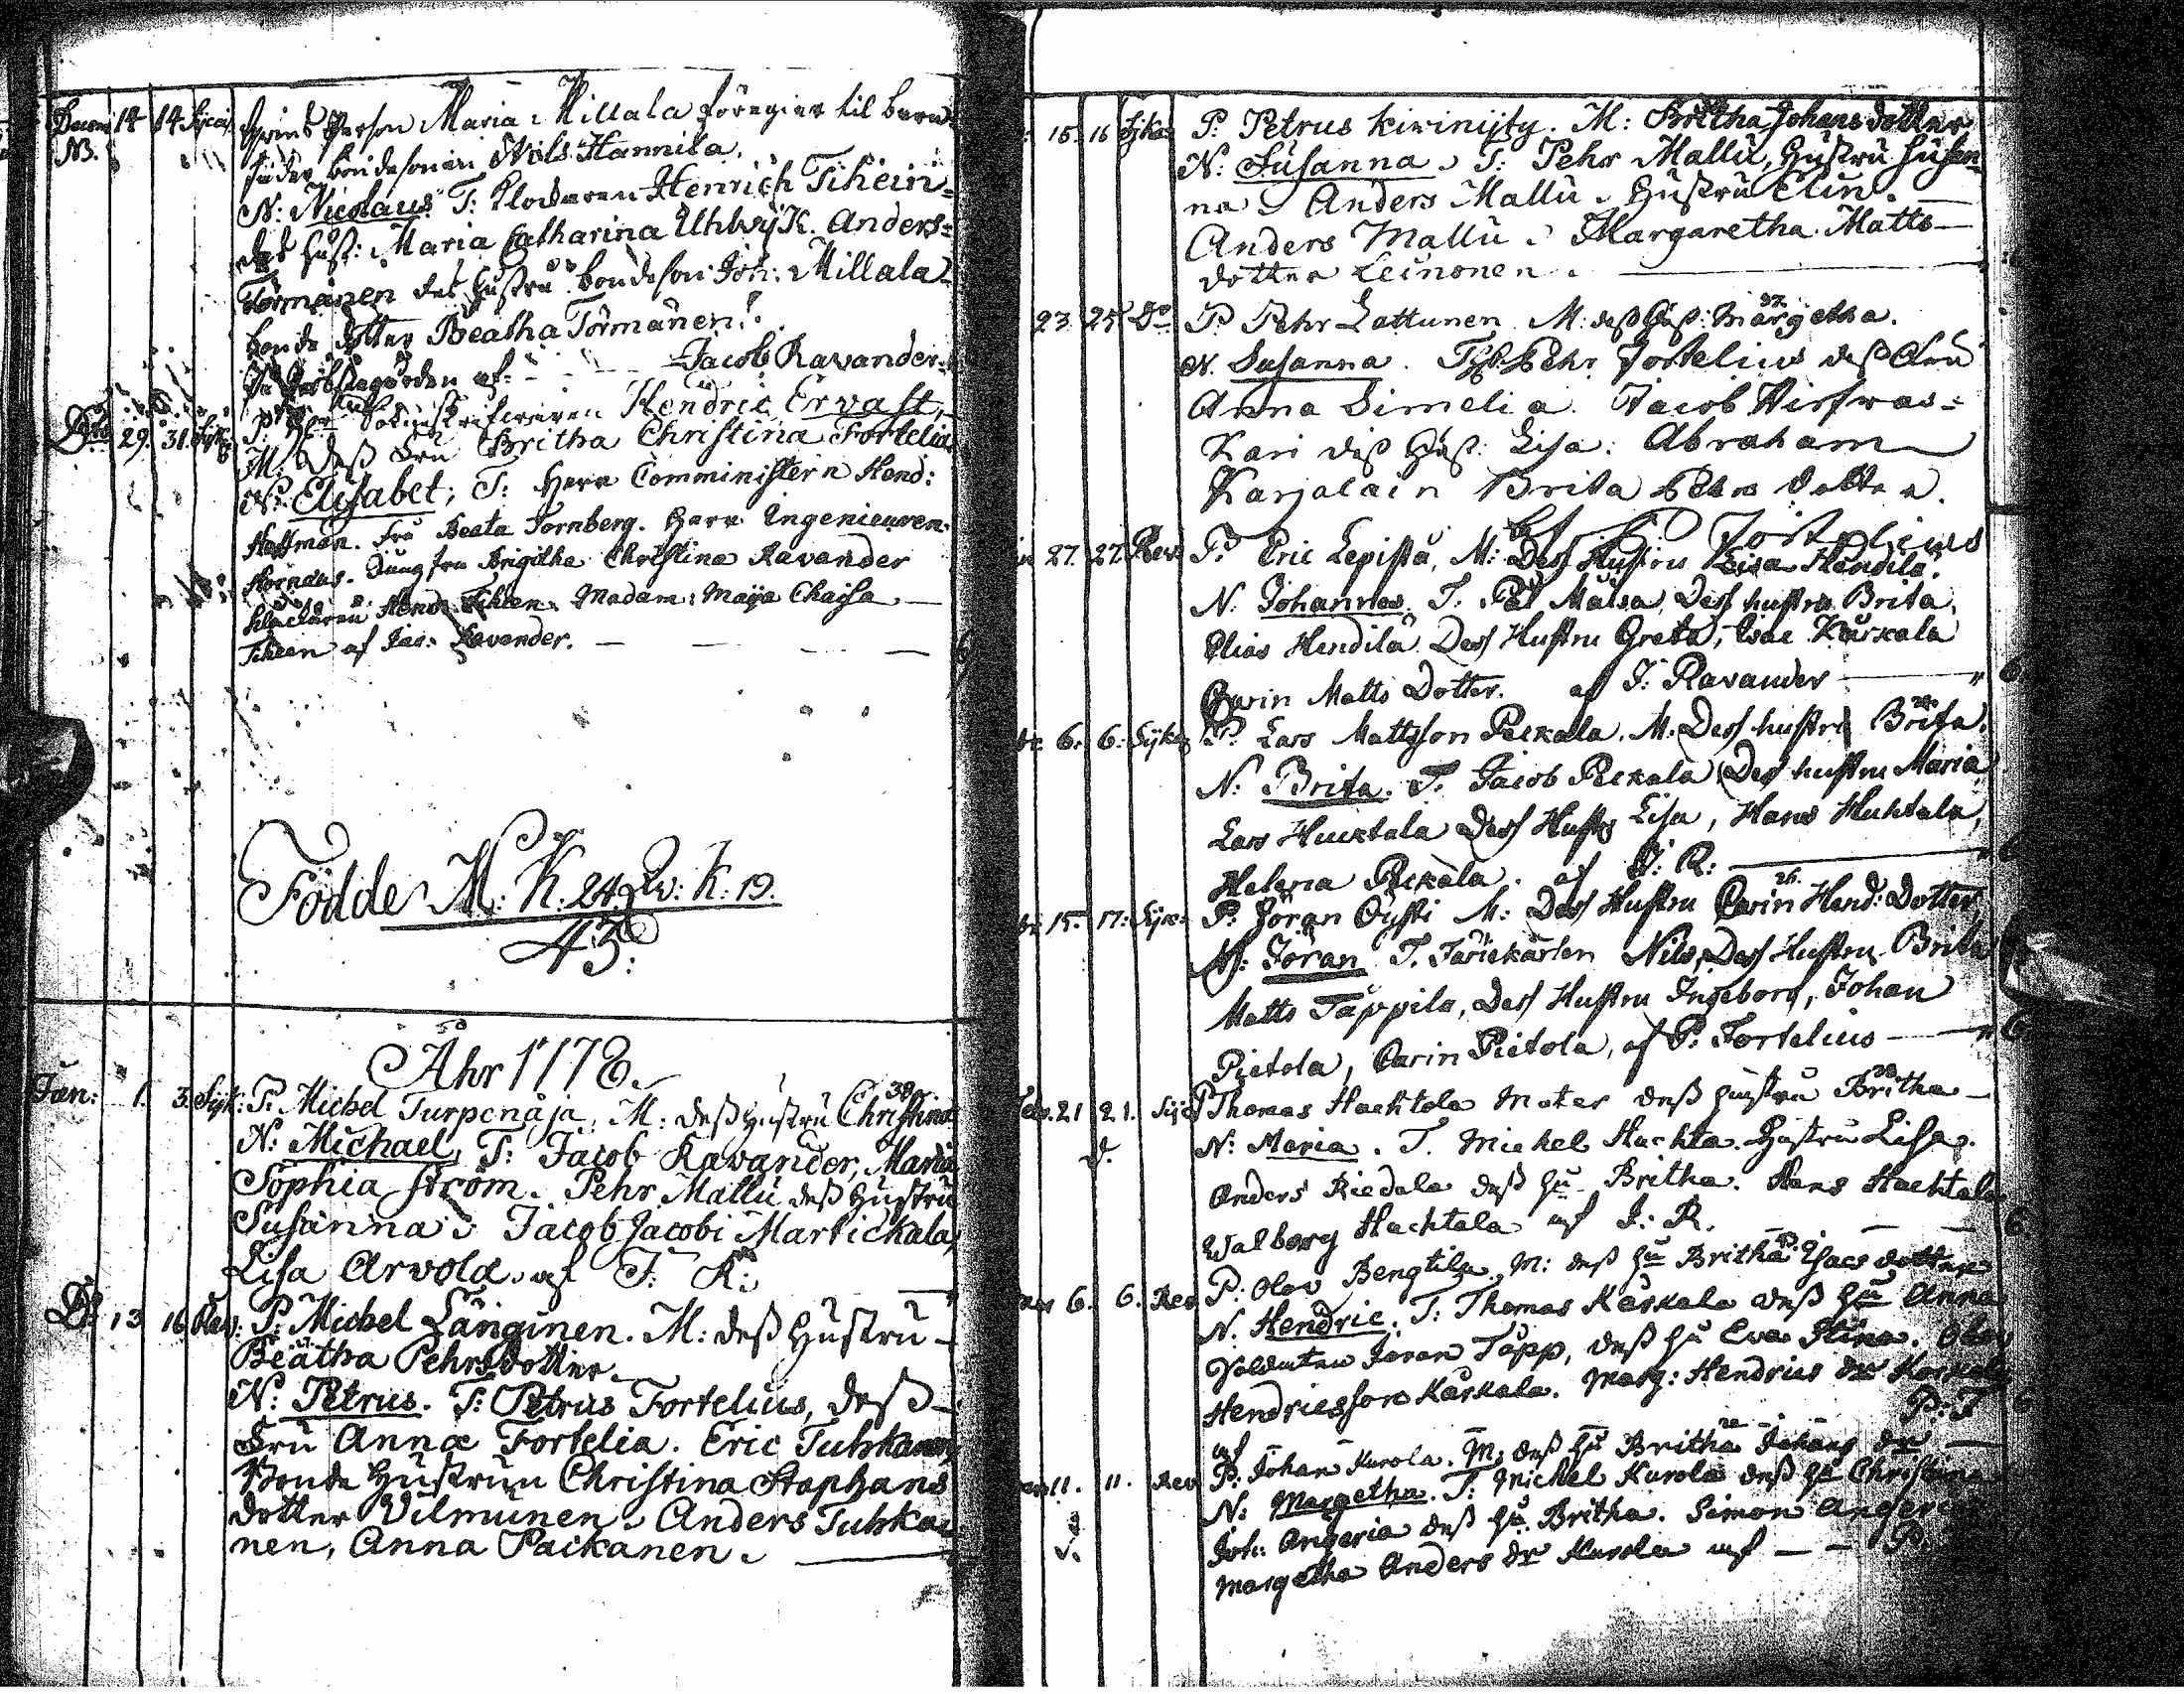 Decem 14 14 Person Maria Millala föregier til barn
NB. fader bondesonen Nils Hannila.
N: Nicolaus T: Klockaren Henrich Tihein=
des Hust: Maria Catharina Anders=
Törmänen des Hustru bondeson Joh: Millala
bonde dotter Beatha Törmänen.
af Jacob Ravander
Dito 29. 31. P: Hendric Ervast,
M: Dess Fru Britha Christina Fortelia
N: Elisabet; T: Herr Comministern Hend:
Hoffman. Fru Beata Tornberg. Herr Ingenieuren
Jungfru Brigitha Christina Ravander
Klockaren Hend: Tiheen. Madam: Maija Chaisa
Tiheen af Jac: Ravander.
Födde M: K: 24. Qv: K: 19.
43:
Ahr 1778.
Jan: 1. 3. Sijk: P: Michel Turpenaja, M: dess Hustru Christina 38
N: Michael, T: Jacob Ravander, Maria
Sophia Ström. Pehr Mallu dess Hustru
Susanna. Jacob Jacobi Martickala,
Lisa Arvola. af J: R:
Do 13 16 Rev: P: Michel Länginen. M: dess Hustru
Beatha Pehrsdotter.
N: Petrus. T: Petrus Fortelius, dess
Fru Anna Fortelia. Eric Tuhkanen,
Bonde Hustrun Christina Stephans
dotter Vilmunen. Anders Tuhka
nen, Anna Paickanen.
15. 16 P: Petrus Kivinijty. M: Britha Johansdotter
N: Susanna. T: Pehr Mallu, Hustru Susan
na. Anders Mallu. Hustru Elin.
Anders Mallu. Margaretha Matts
dotter Leinonen.
23. 25 Do P: Pehr Lattunen M: dess Hust: Margetha. 37
N. Susanna. Pehr Fortelius dess Fru
Anna Simelia. Jacob Hirswas=
Kari dess Hust: Lisa: Abraham
Karjalain Brita Pehrs dotter.
af Fortelius
27. 27. Rev P: Eric Lepistä, M: Dess Hustru Lisa Hendilä.
N: Johannes. T. Pål Matsa, Dess hustru Brita,
Elias Hendilä Dess Hustru Greta, Isac Karkala
Carin Matts Dotter. af J: Ravander 6
6. 6: Sijk P: Lars Mattsson Pekkala. M. Dess hustru Brita.
N: Brita. T. Jacob Pekkala Dess hustru Maria
Lars Hucktala Dess Hust Lisa, Hans Huhtala,
Helena Pekkala. af J: R:
15. 17: Sijk: P: Jöran Öysti M: Dess Hustru Carin Hend: Dotter, 26.
N: Jöran T. Färiekarlen Nils, Dess Hustru Brita
Matts Tappila, Dess Hustru Ingeborg, Johan
Pietola, Carin Pietola, af P: Fortelius 6
Febr. 21 21. P Thomas Hachtola Mater dess hustru Britha 28
N: Maria. T. Michel Huchta. Hustru Lisa.
Anders Riedala dess Hu Britha. Hans Hachtala
Walborg Hachtala af J: R. 6
6. 6. Rev P: Olav Bengtila. M: dess Hu Britha Isacs dotter
N. Hendric. T: Thomas Karkala dess Hu Anna
Soldaten Joran Tapp, dess Hu Eva Stina. Olav
Hendricsson Karkala. Marg: Hendrics dr Karkala
af P: F
11. 11. Rev P: Johan Kurola. M: dess Hu Britha Johans dr
N: Margetha. T: Michel Kurola dess Hu Christina
Joh: Angeria dess Hu Britha. Simon Angeria
Margetha Anders dr Kurola af